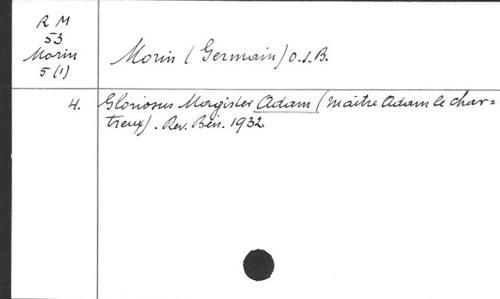 R M
53
Morin
5 (1)
Morin (Germain) O.S.B.
4. Gloriosus Magister Adam (maître Adam le char=
treux). Rev. Bén. 1932.